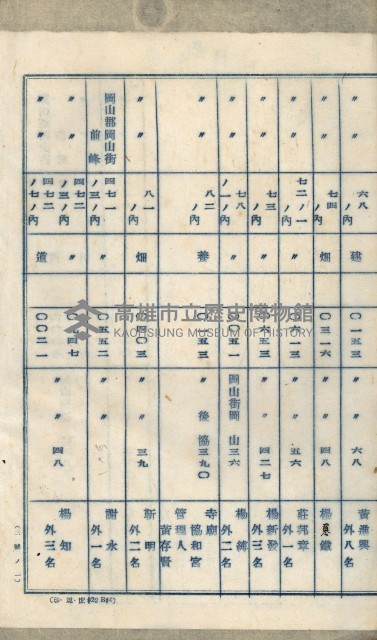 〃 〃 六八ノ內 建 〇一五三 〃 六八 黃進興 外八名
〃 〃 七四ノ內 畑 〇三一六 〃 四八 楊 鐵
〃 〃 七二ノ一ノ內 〃 一三 〃 五六 莊邦章 外一名
〃 〃 七三ノ內 〃 〇六五三 〃 四二七 楊新發 外三名
〃 〃 七八ノ一ノ內 〃 〇五一 岡山街岡山三六 楊 外二名
〃 〃 八二ノ內 養 〇一五三 〃 後協三九〇 寺廟 協和宮 管理人 黃存賢
〃 〃 八一ノ內 畑 〇四〇三 〃 三九 明 外二名
岡山郡岡山街前峰 四七一ノ三ノ內 〃 〇五五二 〃 〃 謝永 外一名
〃 〃 四七二ノ三ノ內 〃 四七 〃 四八 楊知 外三名
〃 〃 四七二ノ七ノ內 道 〇〇二一
高雄市立歷史博物館
KAOHSIUNG MUSEUM OF HISTORY